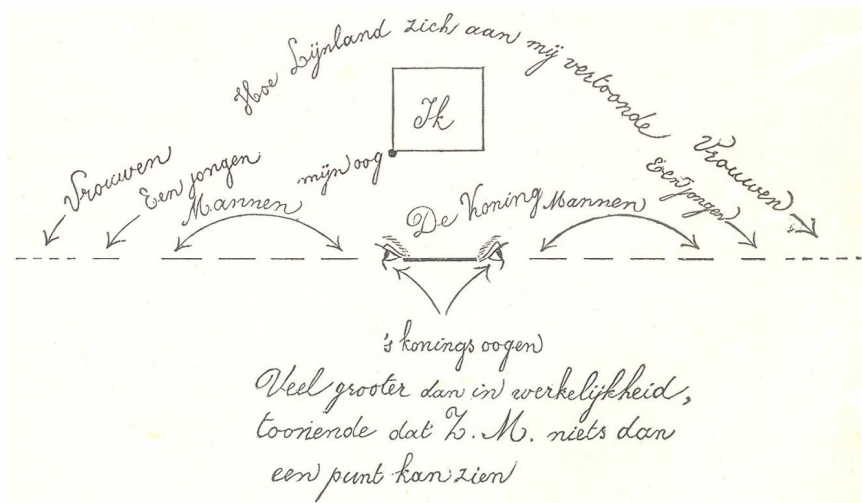 Hoe Lijnland zich aan mij vertoonde
Ik
mijn oog
Vrouwen
Een jongen
Mannen
De Koning
Mannen
Een jongen
Vrouwen
's konings oogen
Veel grooter dan in werkelijkheid,
toonende dat Z. M. niets dan
een punt kan zien